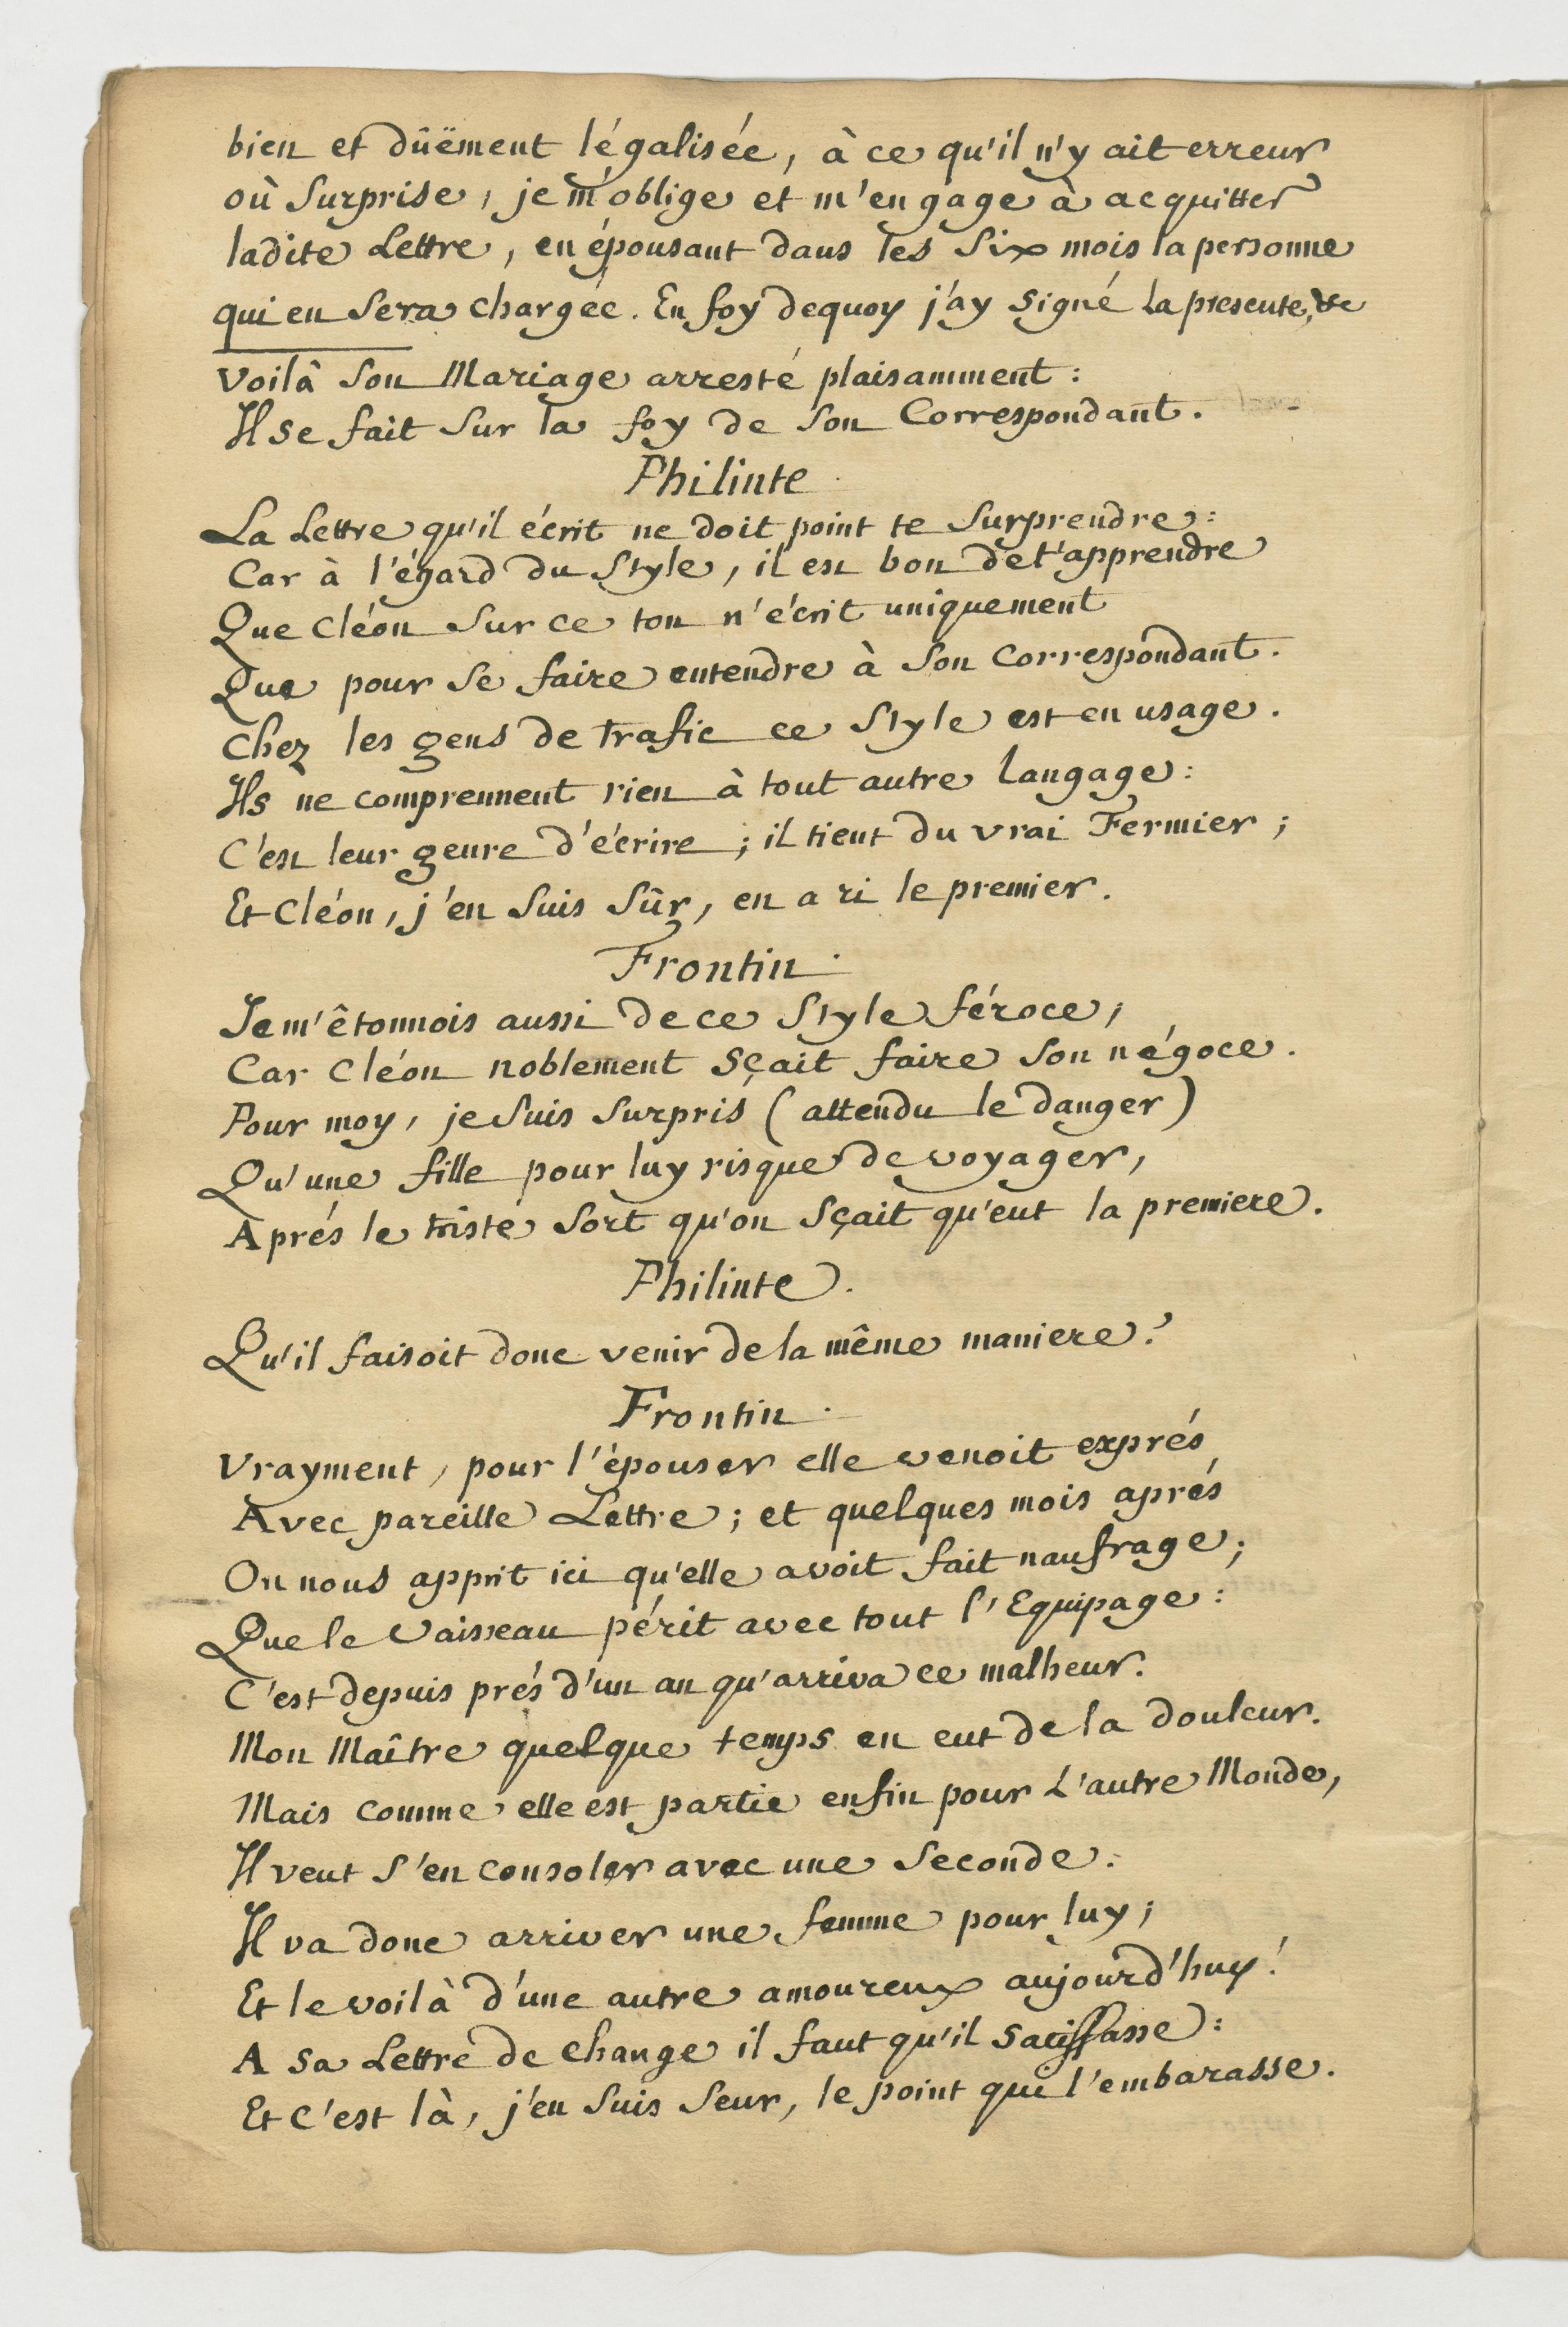 bien et dûëment légalisée, à ce qu'il n'y ait erreur
où Surprise, je m'oblige et m'engage à acquitter
ladite Lettre, en épousant dans les Six mois la personne
qui en Sera chargée. En foy dequoy j'ay Signé la presente, &c
Voilà Son Mariage arresté plaisamment :
Il se fait Sur la foy de Son Correspondant.
Philinte
La Lettre qu'il écrit ne doit point te Surprendre :
Car à l'égard du Style, il est bon de t'apprendre
Que Cléon Sur ce ton n'écrit uniquement
Que pour Se faire entendre à Son Correspondant.
Chez les gens de trafic ce Style est en usage.
Ils ne comprennent rien à tout autre langage :
C'est leur genre d'écrire ; il tient du vrai Fermier ;
Et Cléon, j'en Suis Sûr, en a ri le premier.
Frontin.
Je m'êtonnois aussi de ce Style féroce ;
Car Cléon noblement Sçait faire Son négoce.
Pour moy, je Suis Surpris (attendu le danger)
Qu'une fille pour luy risque de voyager,
Aprés le triste Sort qu'on Sçait qu'eut la premiere.
Philinte.
Qu'il faisoit donc venir de la même maniere ?
Frontin.
Vrayment, pour l'épouser elle venoit exprés
Avec pareille Lettre ; et quelques mois aprés
On nous apprit ici qu'elle avoit fait naufrage ;
Que le Vaisseau périt avec tout l'Equipage :
C'est depuis prés d'un an qu'arriva ce malheur.
Mon Maître quelque temps en eut de la douleur.
Mais comme elle est partie enfin pour L'autre Monde,
Il veut S'en consoler avec une Seconde :
Il va donc arriver une femme pour luy ;
Et le voilà d'une autre amoureux aujourd'huy !
A sa Lettre de Change il faut qu'il Satisfasse :
Et C'est là, j'en Suis Seur, le point qui l'embarasse.